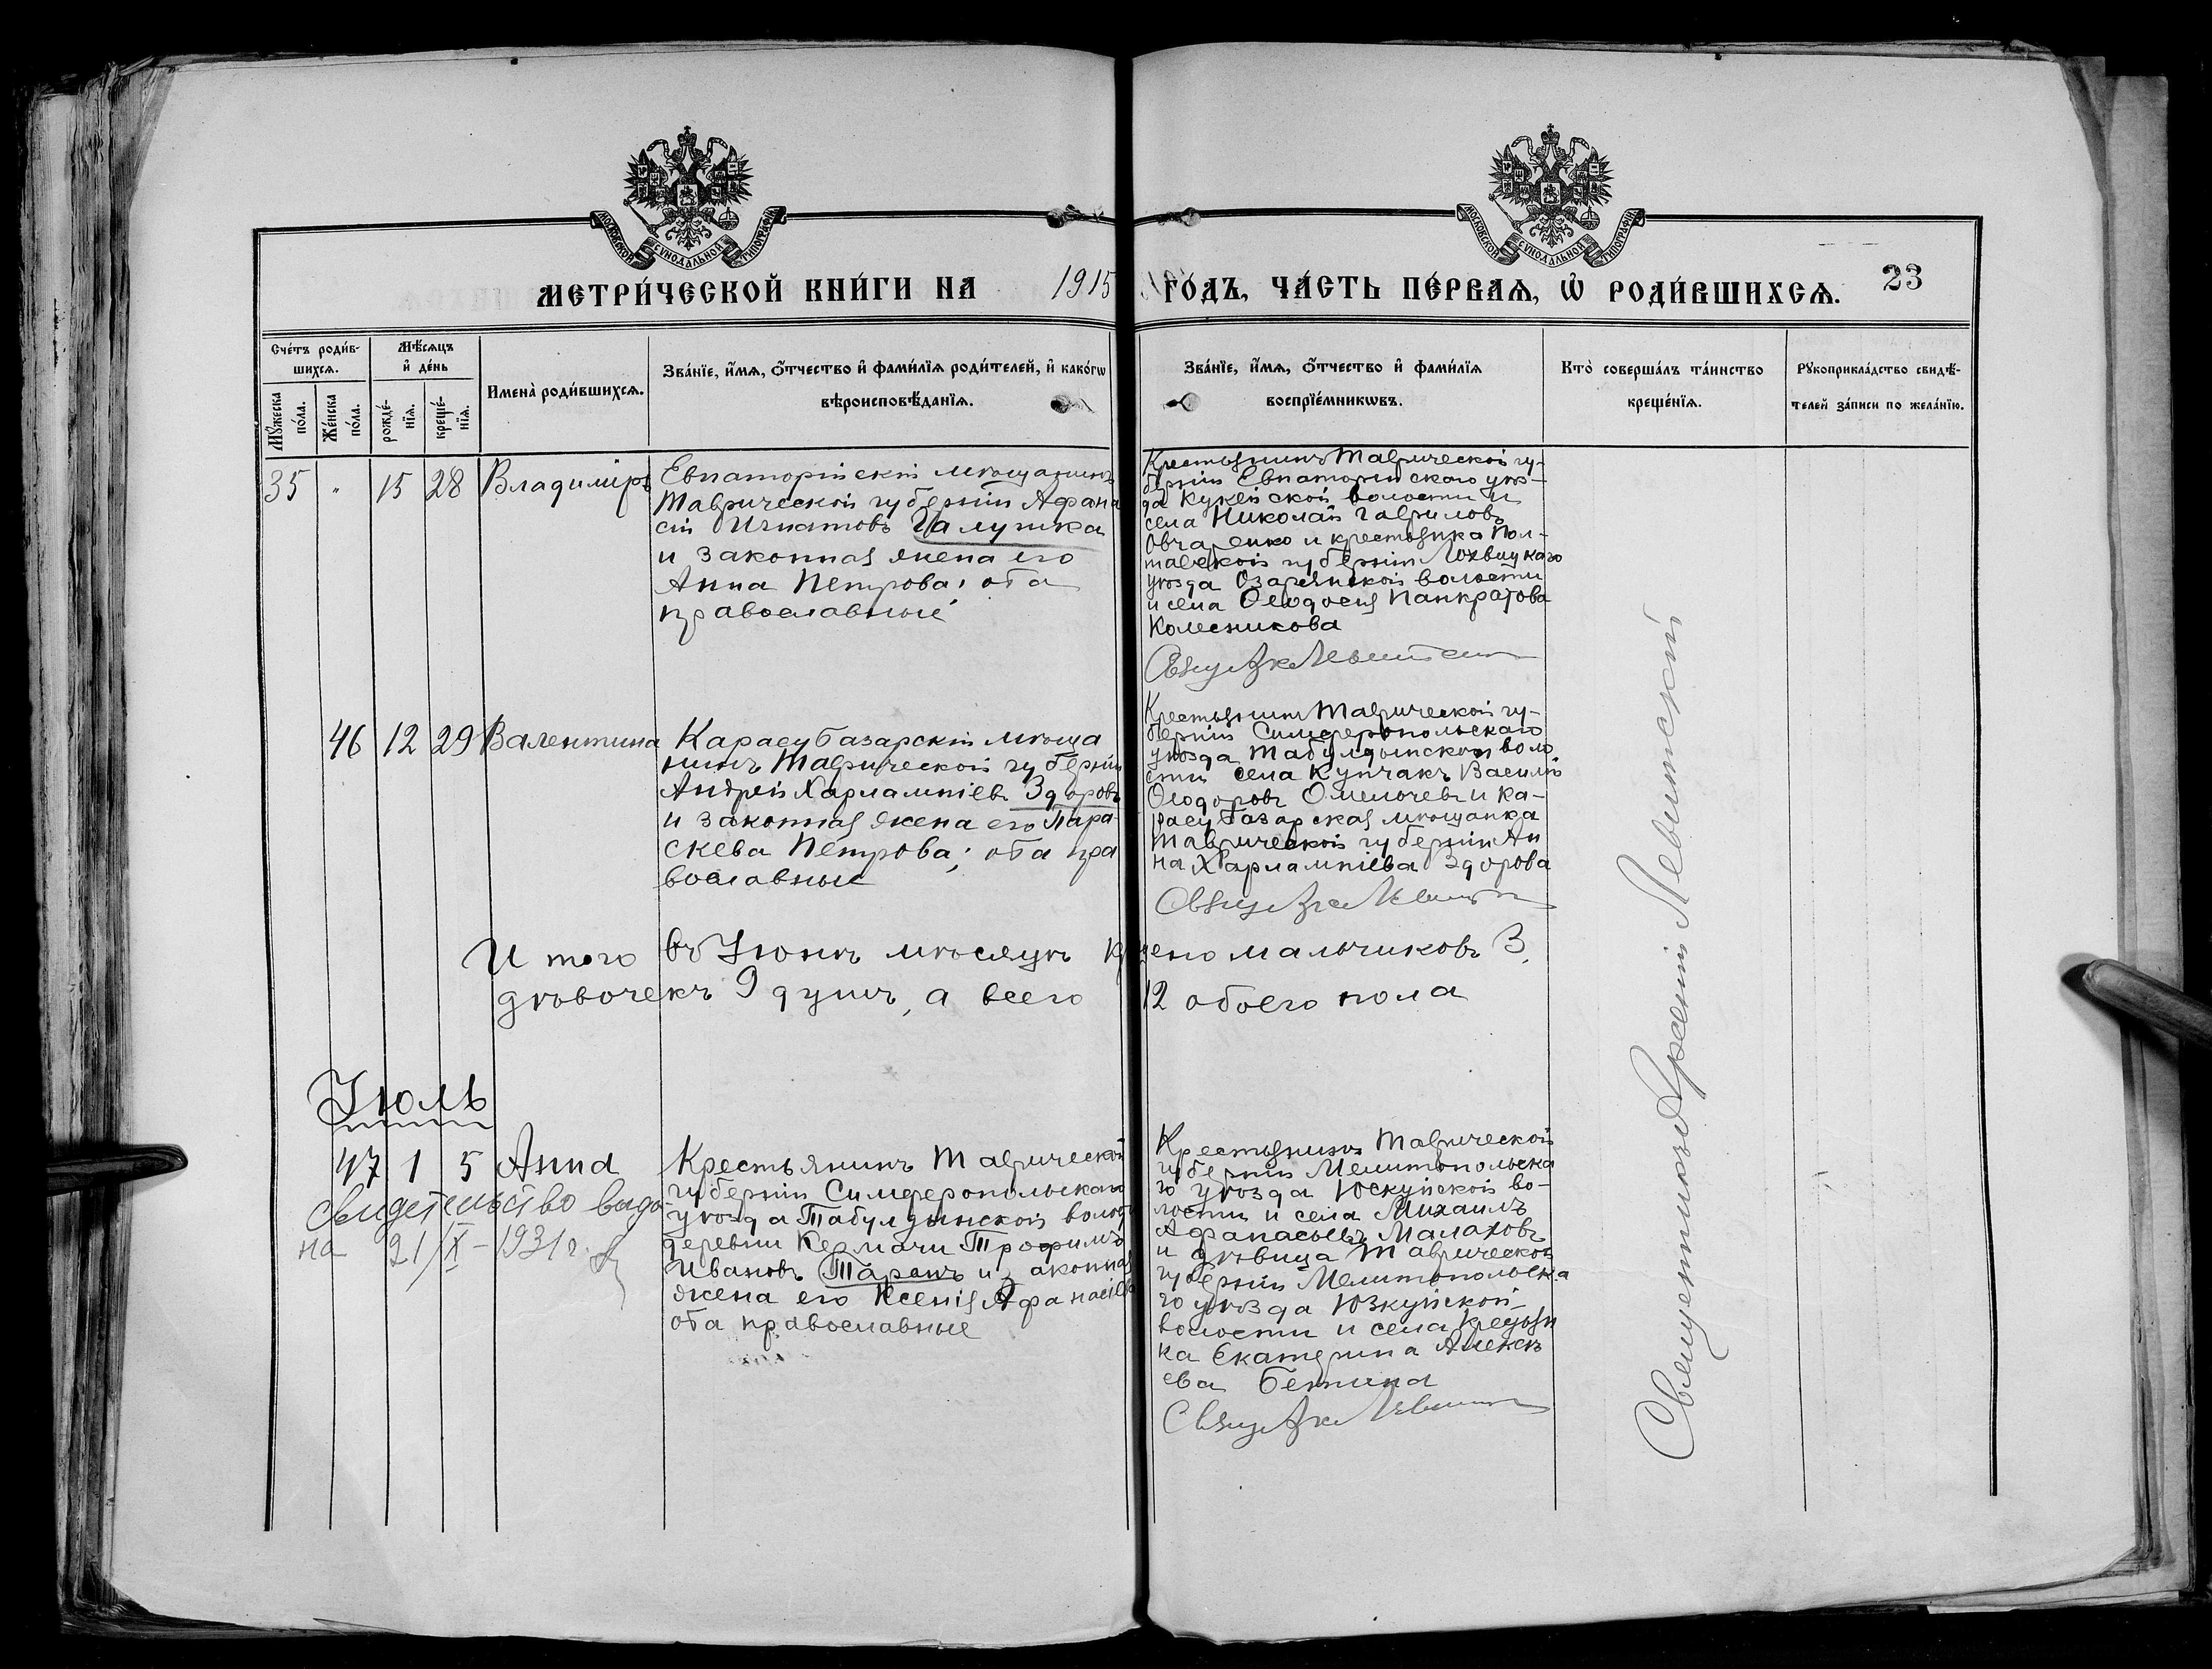 МОСКОВСКОЙ СѴНОДАЛЬНОЙ ТИПОГРАФІИ
МОСКОВСКОЙ СѴНОДАЛЬНОЙ ТИПОГРАФІИ
МЕТРИ́ЧЕСКОЙ КНИ́ГИ НА 1915 ГО́ДЪ, ЧА́СТЬ ПЕ́РВАѦ, Ѡ҆ РОДИ́ВШИХСѦ. 23
Сче́тъ роди́в-
шихсѧ.
Мѣ́сѧцъ
и҆ де́нь
Мꙋ́жеска
по́ла.
Же́нска
по́ла.
рожде́-
нїѧ.
креще́-
нїѧ.
Имена̀ роди́вшихсѧ.
Зва́нїе, и҆́мѧ, ѻ҆́тчество и҆ фами́лїѧ роди́телей, и҆ како́гѡ
вѣроисповѣ́данїѧ.
Зва́нїе, и҆́мѧ, ѻ҆́тчество и҆ фами́лїѧ
воспрїе́мникѡвъ.
Кто̀ соверша́лъ та́инство
креще́нїѧ.
Рꙋкоприкла́дство свидѣ́-
телей за́писи по жела́нїю.
35 " 15 28 Владиміръ
Евпаторійскій мѣщанинъ
Таврической губерніи Афана
сій Игнатовъ Галушка
и законная жена его
Анна Петрова; оба
православные
Крестьянинъ Таврической гу-
берніи Евпаторійскаго уѣз-
да Кукейской волости и
села Николай Гавриловъ
Овчаренко и крестьянка Пол-
тавской губерніи Лохвицкаго
уѣзда Озарянской волости
и села Ѳеодосія Панкратова
Колесникова
46 12 29 Валентина
Карасубазарскій мѣща
нинъ Таврической губерніи
Андрей Харлампіевъ Здоровъ
и законная жена его Пара-
скева Петрова; оба пра
вославные
Крестьянинъ Таврической гу-
берніи Симферопольскаго
уѣзда Табулдынской воло
сти села Купчакъ Василій
Ѳеодоровъ Омелочевъ и ка-
расубазарская мѣщанка
Таврической губерніи Ан
на Харлампіева Здорова
Итого въ Іюнѣ мѣсяцѣ крещено мальчиковъ 3,
дѣвочекъ 9 душъ, а всего 12 обоего пола
Іюль
47 1 5 Анна
Свидетельство выда
на 21/X-1931г.
Крестьянинъ Таврической
губерніи Симферопольскаго
уѣзда Табулдынской волости
деревни Кермачи Трофимъ
Ивановъ Таранъ и законная
жена его Ксенія Афанасіева
оба православные
Крестьянинъ Таврической
губерніи Мелитопольска
го уѣзда Юскуйской во-
лости и села Михаилъ
Афанасьевъ Малаховъ
и дѣвица Таврической
губерніи Мелитопольска
го уѣзда Юзкуйской
волости и села крестьян
ка Екатерина Алексѣ
ева
Священникъ Арсеній Левитскій